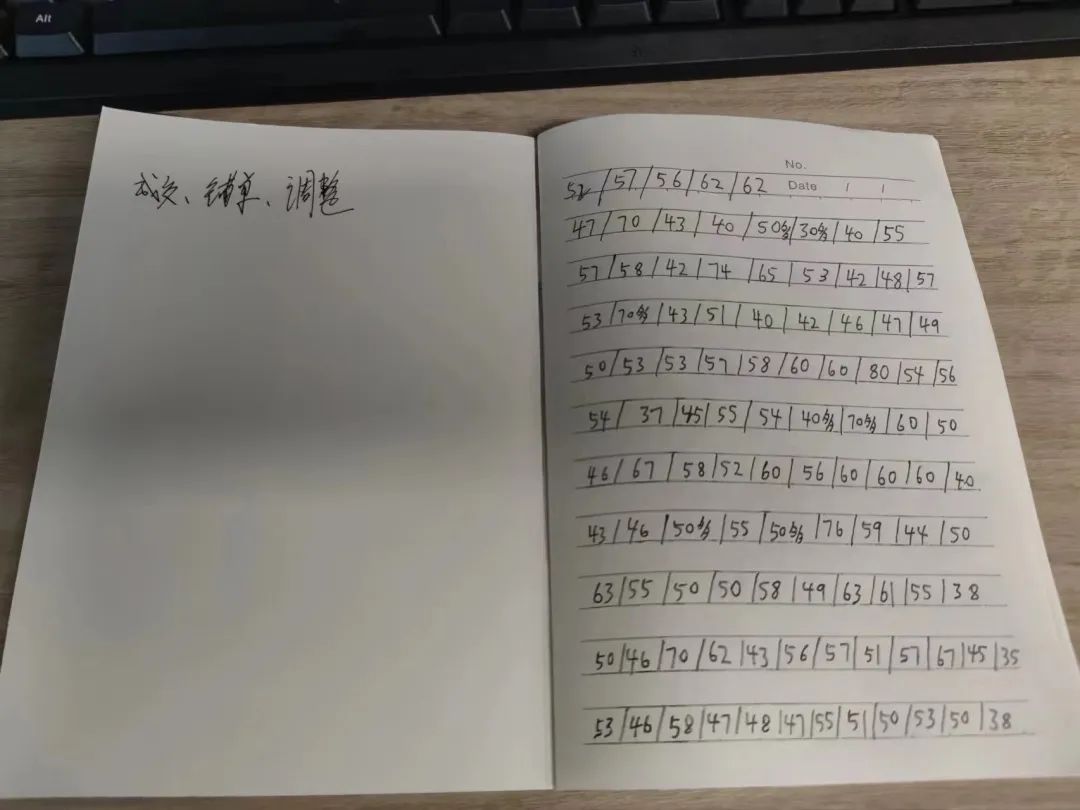 Alt
成交、铺单、调整
No.
Date / /
52/57/56/62/62
47/70/43/40/50多/30多/40/55
57/58/42/74/65/53/42/48/57
53/70多/43/51/40/42/46/47/49
50/53/53/57/58/60/60/80/54/56
54/37/45/55/54/40多/70多/60/50
46/67/58/52/60/56/60/60/60/40
43/46/50多/55/50多/76/59/44/50
63/55/50/50/58/49/63/61/55/38
50/46/70/62/43/56/57/51/57/67/45/35
53/46/58/47/48/47/55/51/50/53/50/38